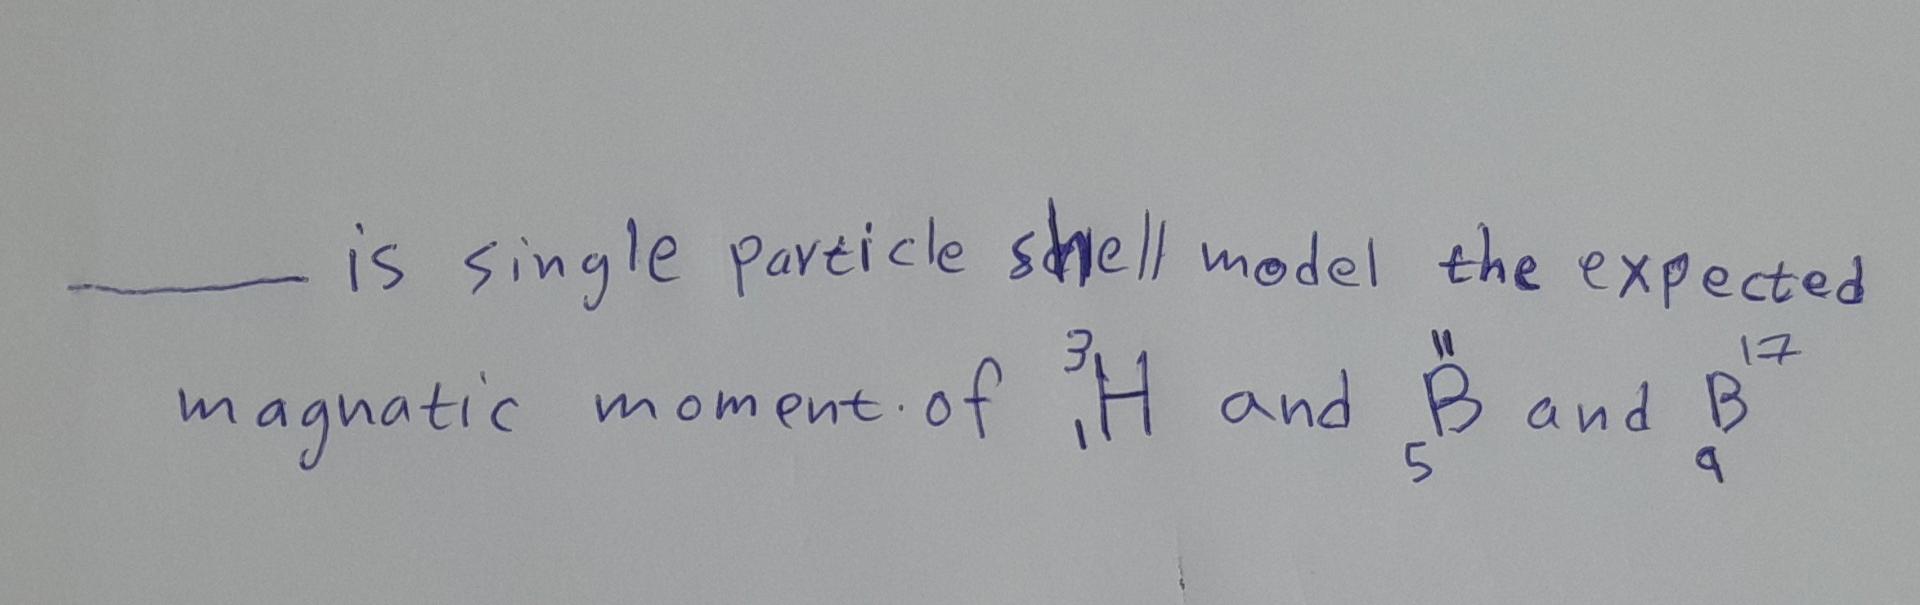 ______ is single particle shell model the expected
magnatic moment. of ³₁H and ¹¹₅B and B¹⁷₉